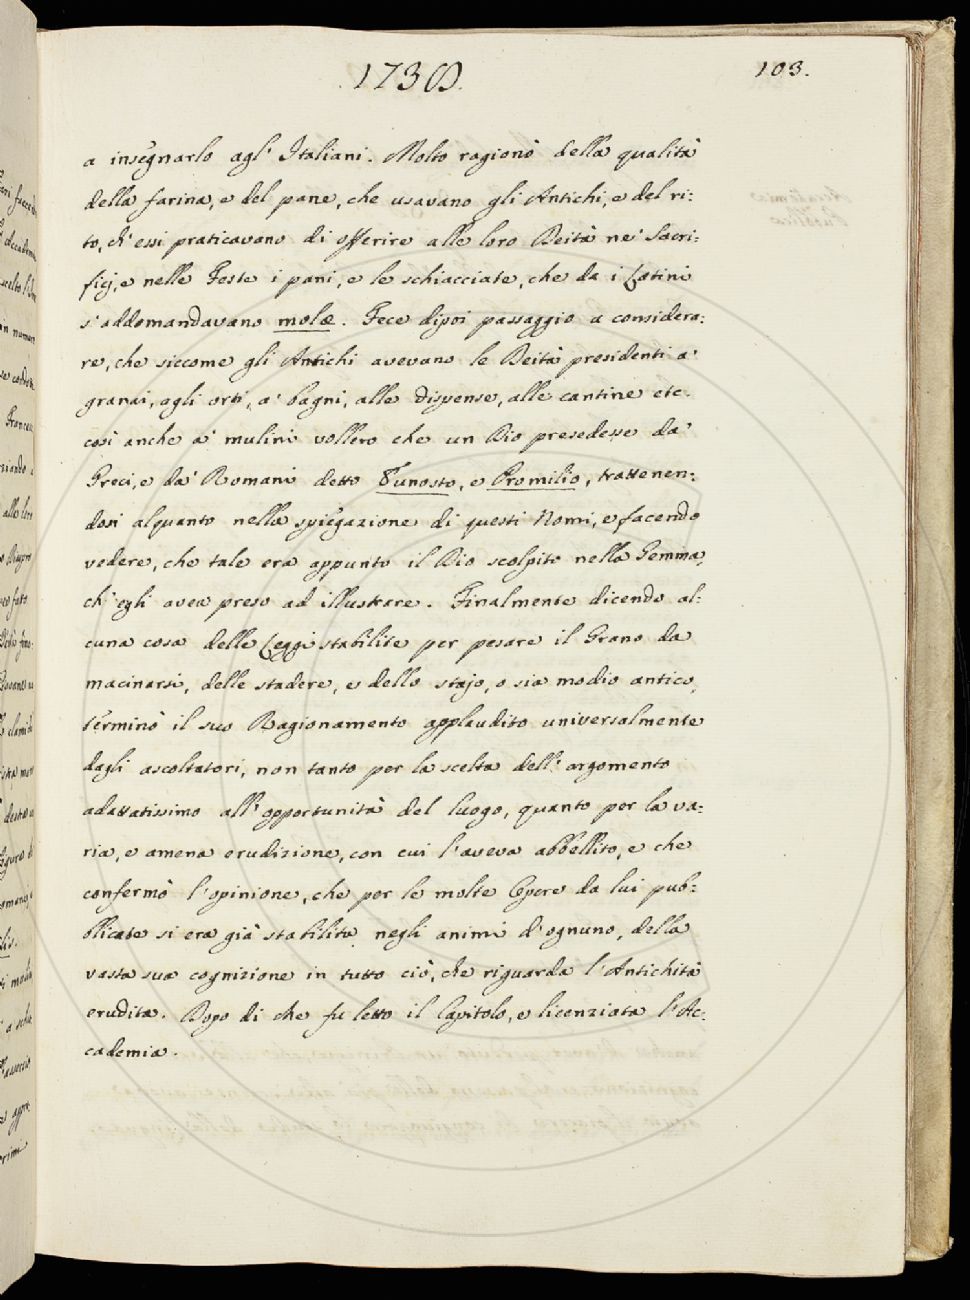 1730.
103.
a insegnarlo agl' Italiani. Molto ragionò della qualità
della farina, e del pane, che usavano gli Antichi, e del ri:
to, ch' essi praticavano di offerire alle loro Deità ne' Sacri:
ficj, e nelle Feste i pani, e le schiacciate, che da i Latini
s' addomandavano molæ. Fece dipoi passaggio a considera:
re, che siccome gli Antichi avevano le Deità presidenti a'
granai, agli orti, a' bagni, alle dispense, alle cantine etc.
così anche a' mulini vollero che un Dio presedesse da'
Greci, e da' Romani detto Eunosto, e Promilio, trattenen:
dosi alquanto nella spiegazione di questi Nomi, e facendo
vedere, che tale era appunto il Dio scolpito nella Gemma,
ch' egli avea preso ad illustrare. Finalmente dicendo al:
cuna cosa delle Leggi stabilite per pesare il Grano da
macinarsi, delle stadere, e dello stajo, o sia modio antico,
terminò il suo Ragionamento applaudito universalmente
dagli ascoltatori, non tanto per la scelta dell' argomento
adattatissimo all' opportunità del luogo, quanto per la va:
ria, e amena erudizione, con cui l' aveva abbellito, e che
confermò l' opinione, che per le molte Opere da lui pub:
blicate si era già stabilita negli animi d' ognuno, della
vasta sua cognizione in tutto ciò, che riguarda l' Antichità
erudita. Dopo di che fu letto il Capitolo, e licenziata l' Ac:
cademia.